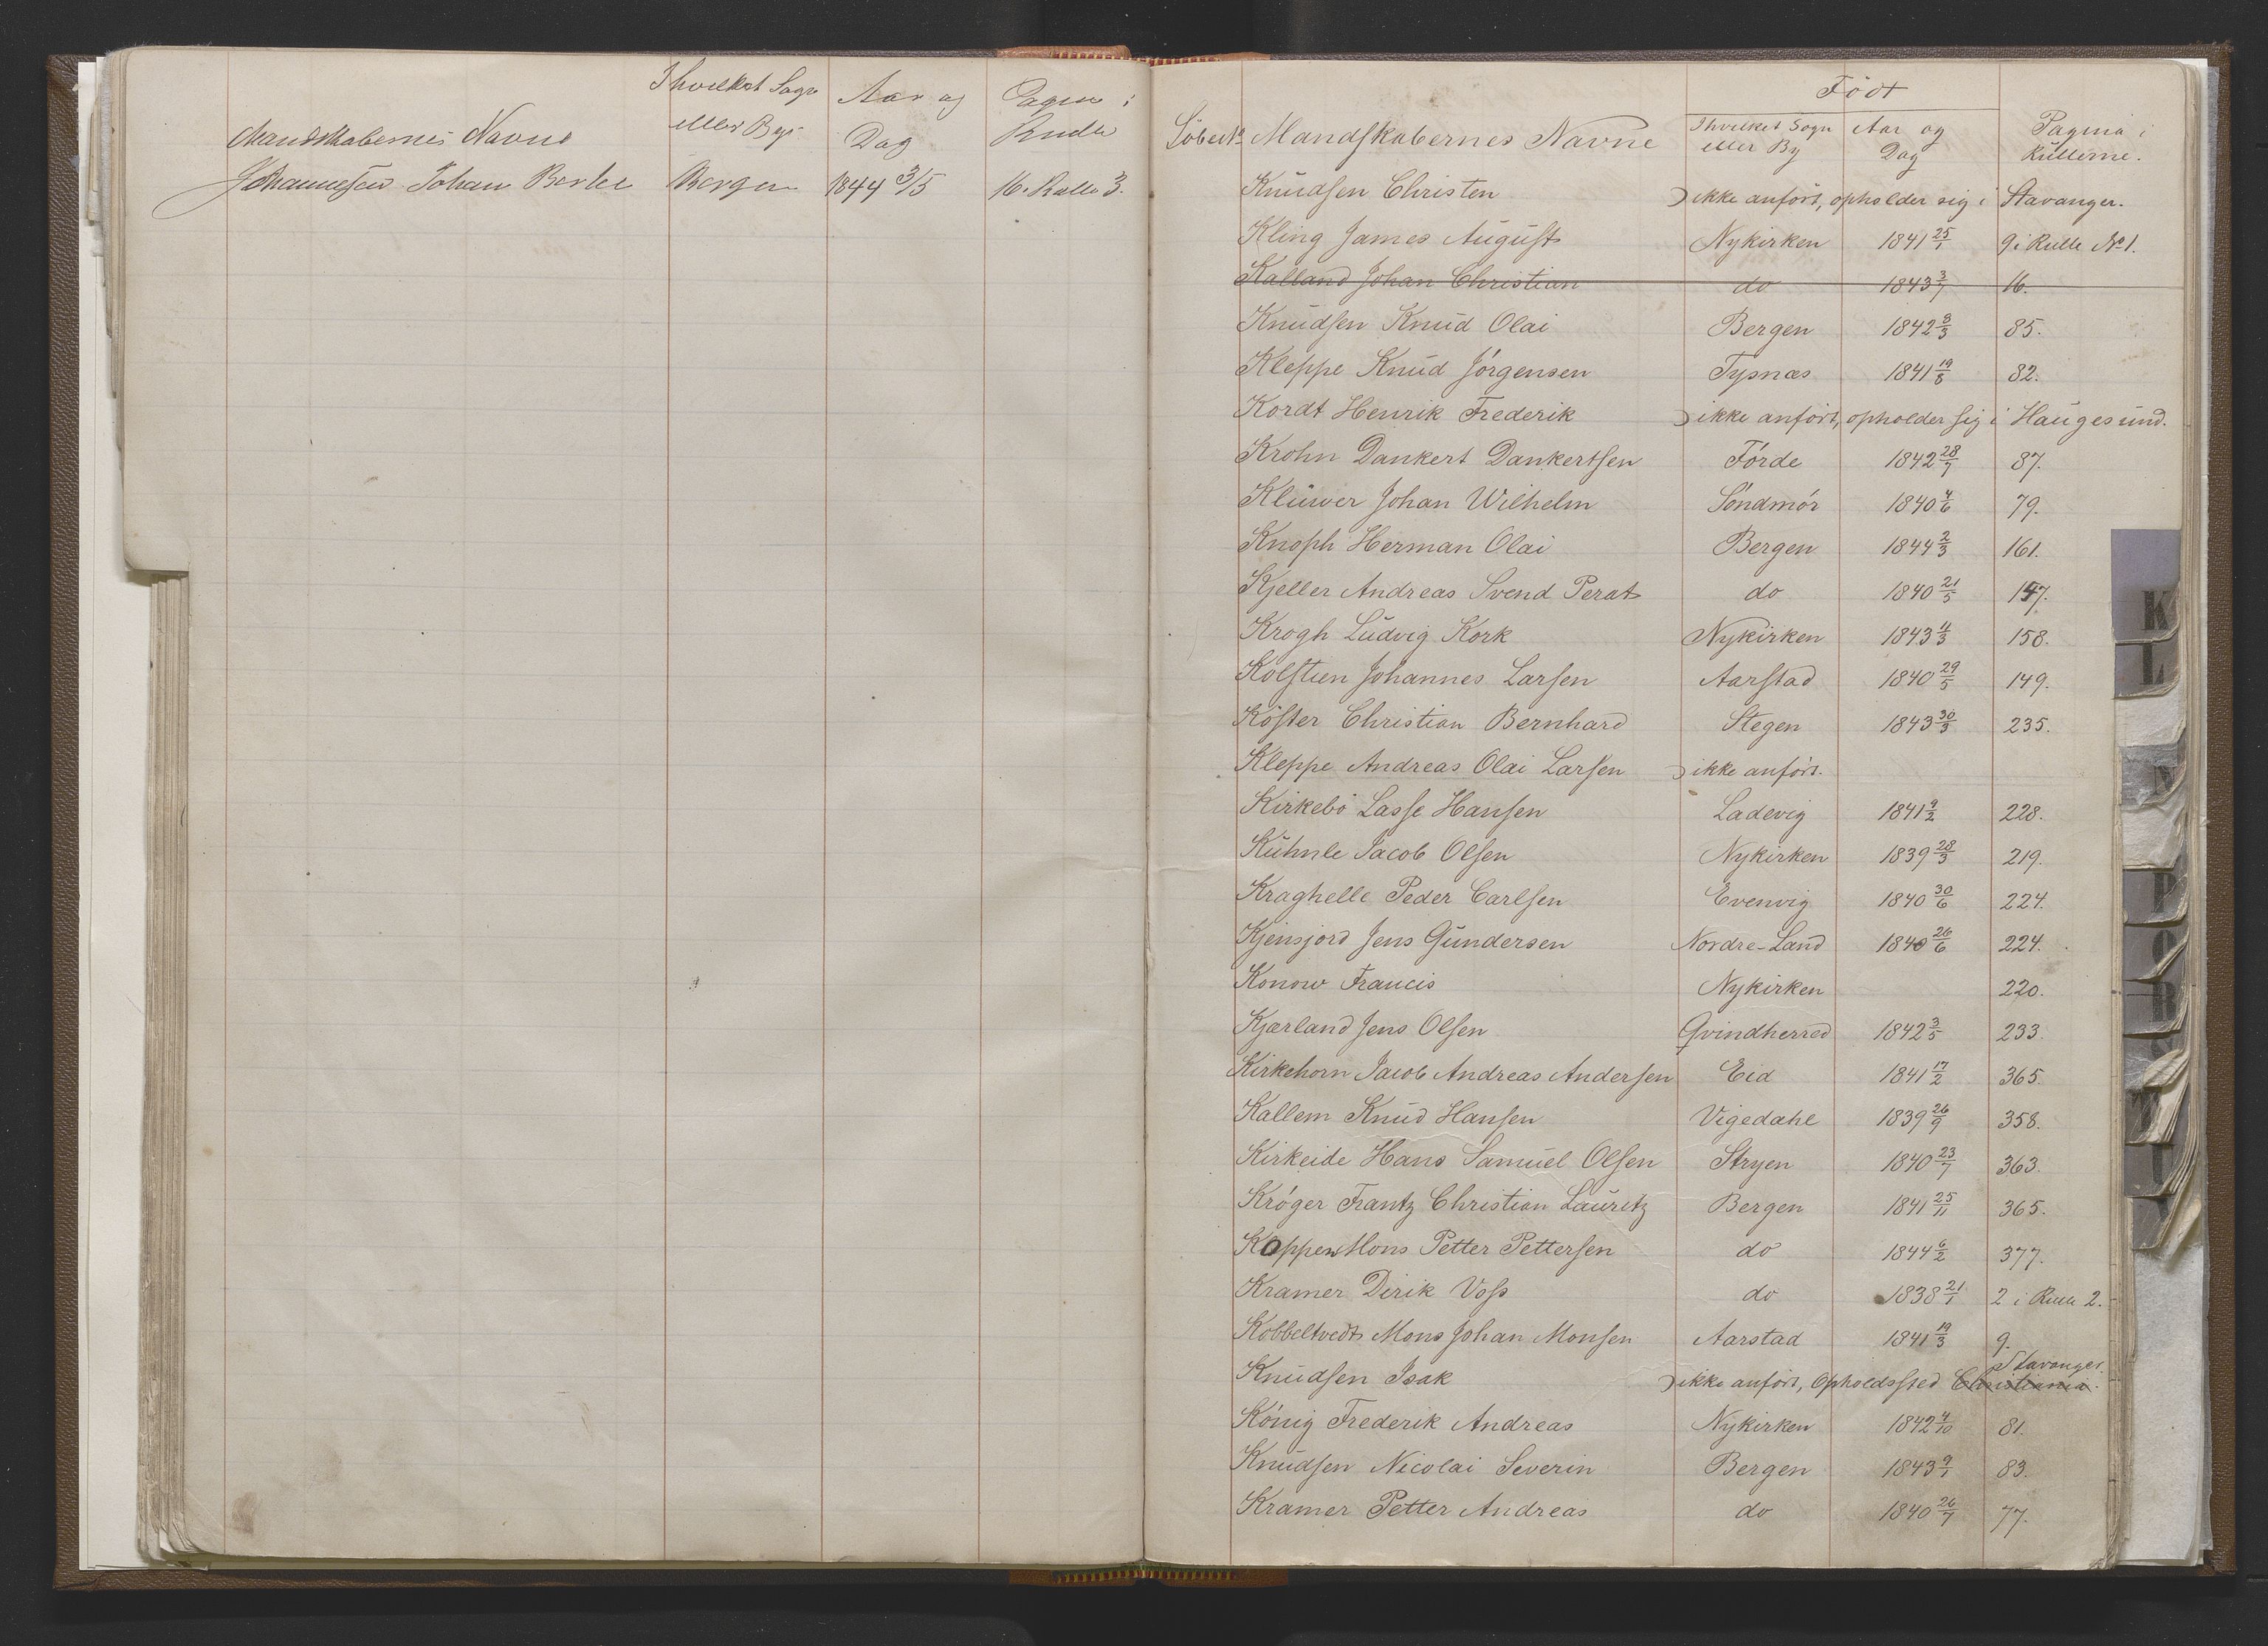 Mandskabernes Navne | I hvilket Sogn eller By | Aar og Dag | Pagina i Rulle
Johannesen Johan Berle | Bergen | 1844 3/5 | 16. Rulle 3.
Født
Löbe No | Mandskabernes Navne | I hvilket Sogn eller By | Aar og Dag | Pagina i Rullerne.
Knudsen Christen | ikke anført, opholder sig i Stavanger.
Kling James August | Nykirken | 1841 25/1 | 9 i Rulle No 1.
Kalland Johan Christian | do | 1843 3/7 | 16.
Knudsen Knud Olai | Bergen | 1842 8/3 | 85.
Kleppe Knud Jörgensen | Tysnæs | 1841 19/8 | 82.
Kordt Henrik Frederik | ikke anført, opholder sig i Haugesund.
Krohn Dankert Dankertsen | Förde | 1842 28/7 | 87.
Klüwer Johan Wilhelm | Söndmör | 1840 4/6 | 79.
Knoph Herman Olai | Bergen | 1844 2/3 | 161.
Kjeller Andreas Svend Perat | do | 1840 21/5 | 147.
Krogh Ludvig Kork | Nykirken | 1843 11/3 | 158.
Kolstien Johannes Larsen | Aarstad | 1840 29/5 | 149.
Köster Christian Bernhard | Stegen | 1843 30/3 | 235.
Kleppe Andreas Olai Larsen | ikke anført.
Kirkebö Lasse Hansen | Ladevig | 1841 9/2 | 228.
Kühnle Jacob Olsen | Nykirken | 1839 28/3 | 219.
Kraghelle Peder Carlsen | Evenvig | 1840 30/6 | 224.
Kjensjord Jens Gundersen | Nordre-Land | 1840 26/6 | 224.
Konow Francis | Nykirken | 220.
Kjærland Jens Olsen | Qvindherred | 1842 3/5 | 233.
Kirkehorn Jacob Andreas Andersen | Eid | 1841 17/2 | 365.
Kallem Knud Hansen | Vigedahl | 1839 26/9 | 358.
Kirkeide Hans Samuel Olsen | Stryen | 1840 23/7 | 363.
Kröger Frantz Christian Lauritz | Bergen | 1841 25/11 | 365.
Koppen Mons Petter Pettersen | do | 1844 6/2 | 377.
Kramer Dirik Voss | do | 1838 21/1 | 2 i Rulle 2.
Kobbeltvedt Mons Johan Monsen | Aarstad | 1841 19/3 | 9.
Stavanger
Knudsen Isak | ikke anført, Opholdssted Christiania.
König Frederik Andreas | Nykirken | 1842 4/10 | 81.
Knudsen Nicolai Severin | Bergen | 1843 9/1 | 83.
Kramer Petter Andreas | do | 1840 26/7 | 77.
K
L
N
P
R
S